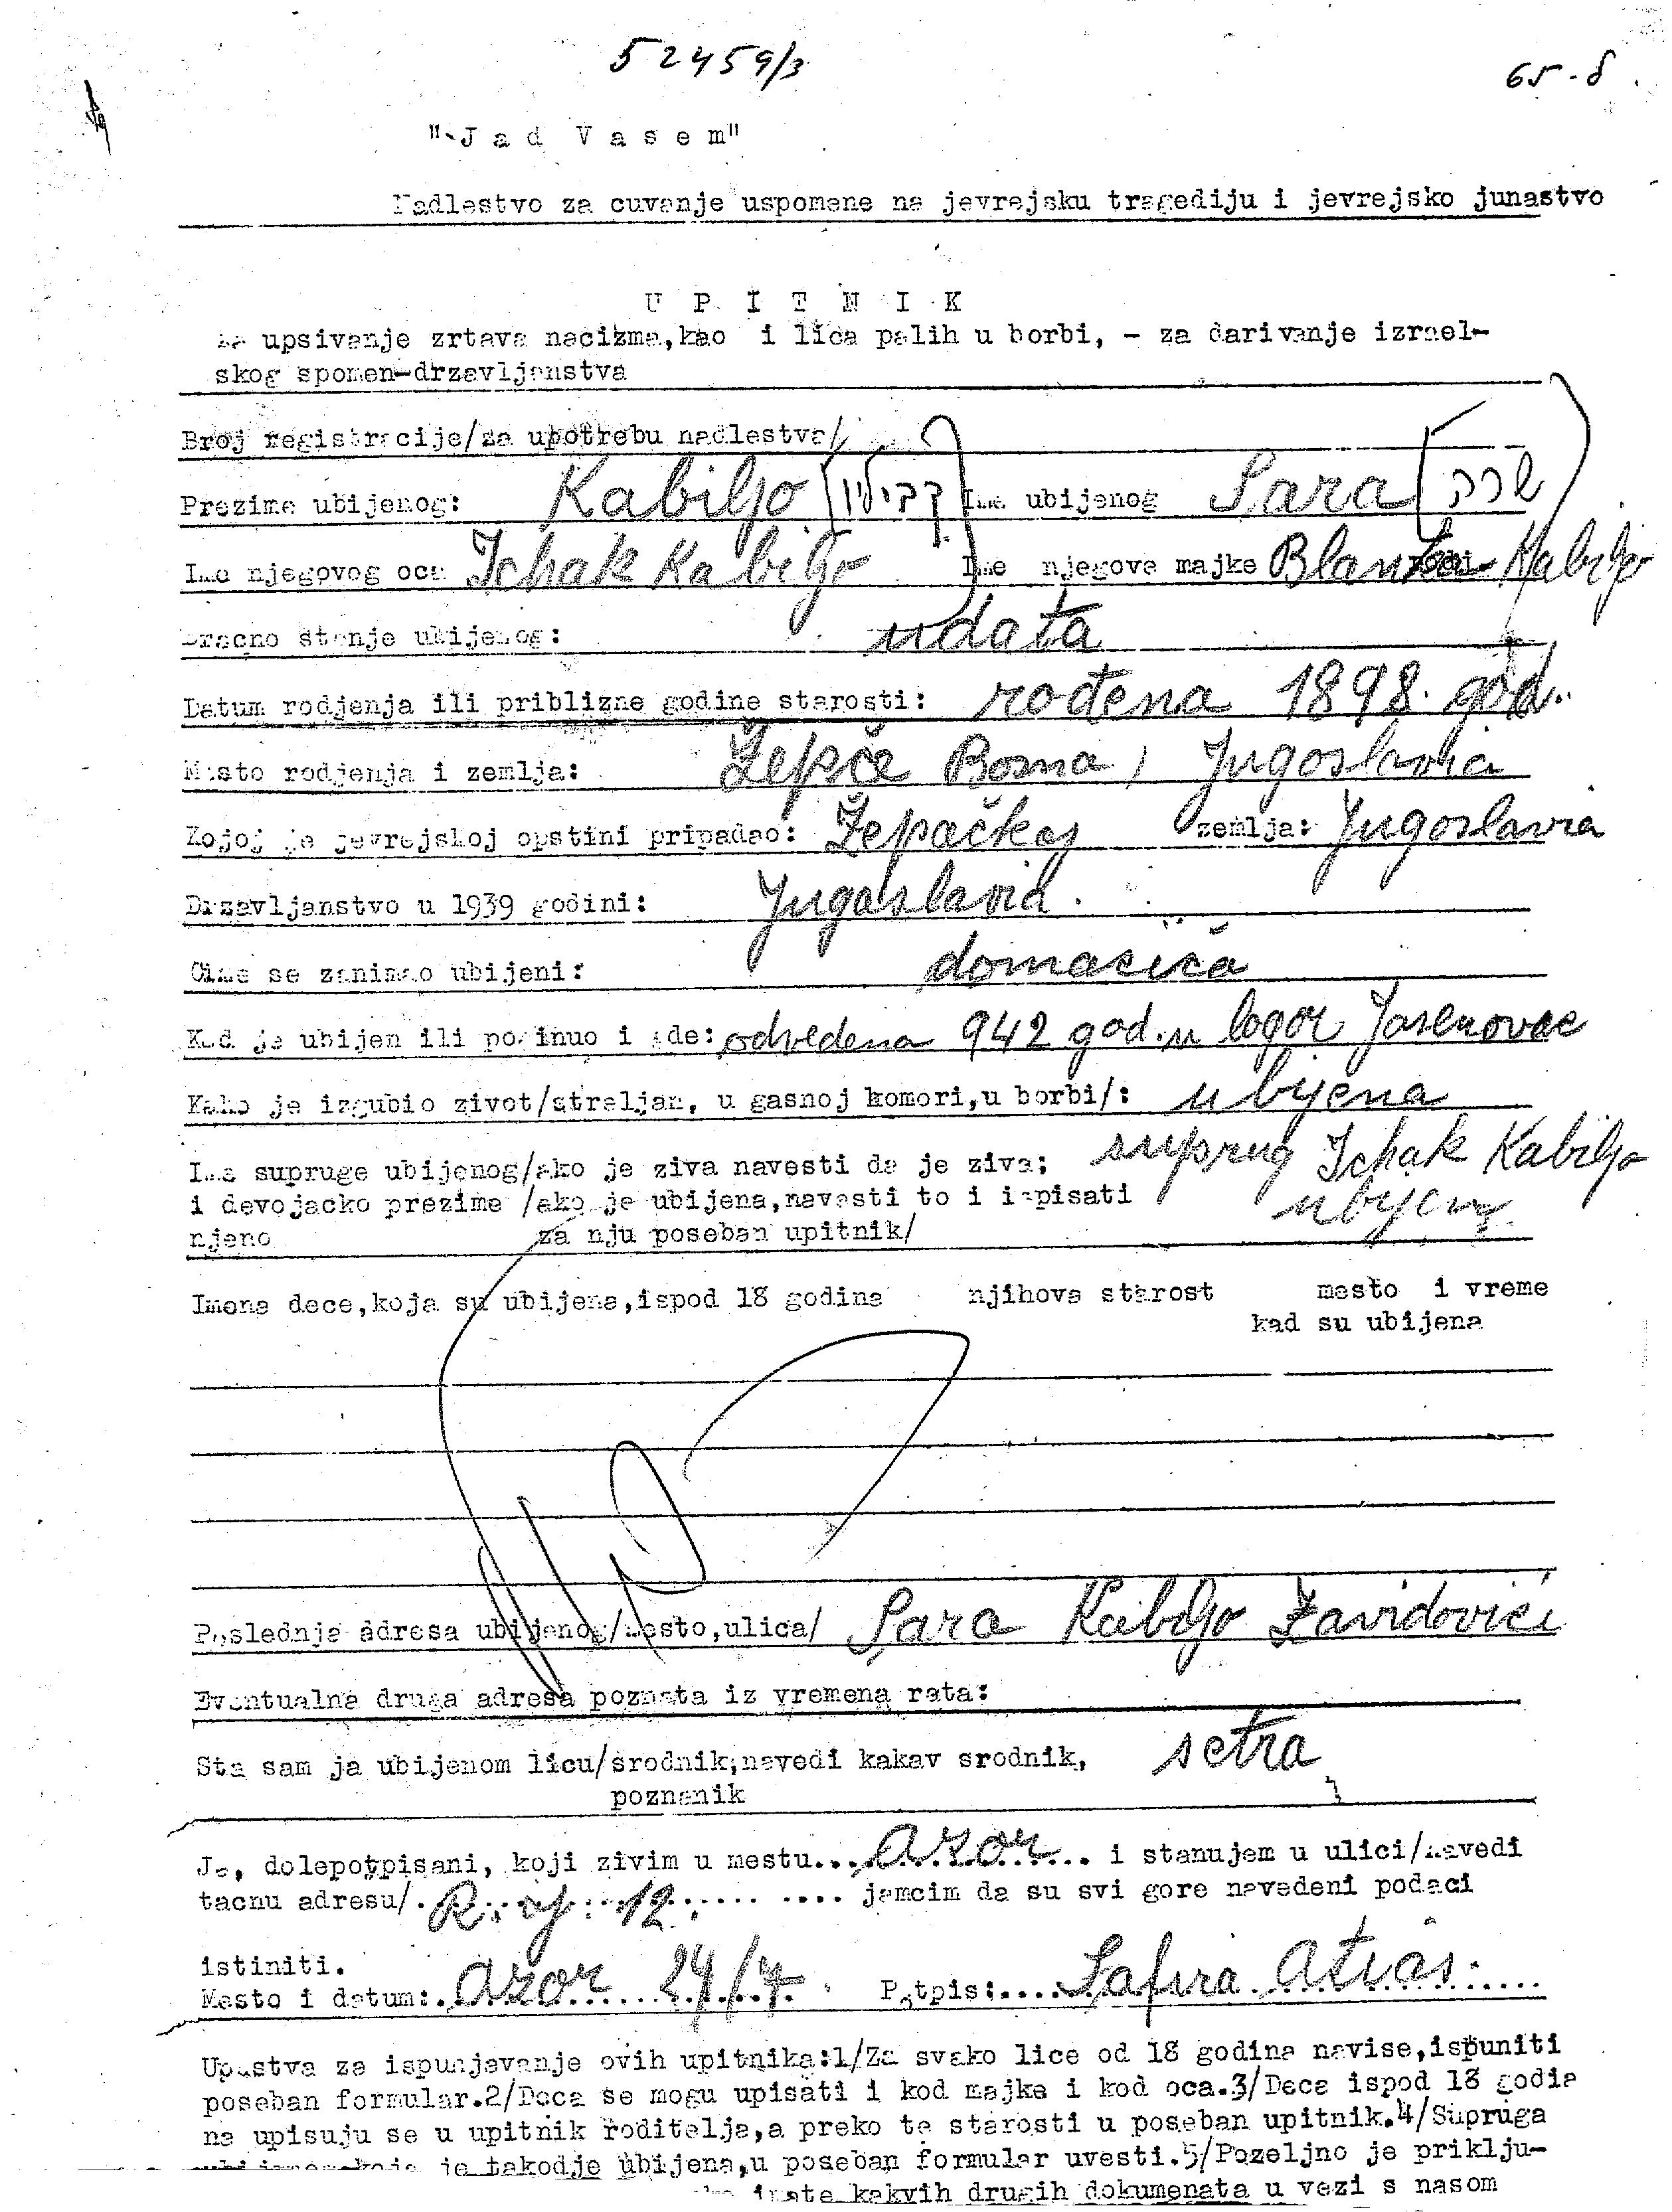 52459/3
65-8
"Jad Vasem"
Nadlestvo za cuvanje uspomene na jevrejsku tragediju i jevrejsko junastvo
UPITNIK
za upsivanje zrtava nacizma,kao i lica palih u borbi, - za darivanje izrael-
skog spomen-drzavljanstva
Broj registracije/za upotrebu nadlestva/
Prezime ubijenog: Kabiljo (קביליו) Ime ubijenog Sara [שרה]
Ime njegovog oca Ichak Kabiljo Ime njegove majke Blanka Kabiljo
Bracno stanje ubijenog: udata
Datum rodjenja ili priblizne godine starosti: rođena 1898. god.
Mesto rodjenja i zemlja: Žepče Bosna, Jugoslavia
Kojoj je jevrejskoj opstini pripadao: Žepačkoj zemlja: Jugoslavia
Drzavljanstvo u 1939 godini: Jugoslavia.
Cime se zanimao ubijeni: domaćica
Kad je ubijen ili poginuo i gde: odvedena 942 god. u logor Jasenovac
Kako je izgubio zivot/streljan, u gasnoj komori,u borbi/: ubijena
Ime supruge ubijenog/ako je ziva navesti da je ziva; suprug Ichak Kabiljo
i devojacko prezime /ako je ubijena,navesti to i ispisati ubijen
njeno za nju poseban upitnik/
Imena dece,koja su ubijena,ispod 18 godina njihova starost mesto i vreme
kad su ubijena
Poslednja adresa ubijenog/mesto,ulica/ Sara Kabiljo Zavidovići
Eventualna druga adresa poznata iz vremena rata:
Sta sam ja ubijenom licu/srodnik;navedi kakav srodnik, setra
poznanik
Ja, dolepotpisani, koji zivim u mestu... Azor ... i stanujem u ulici/navedi
tacnu adresu/. 12. .... jamcim da su svi gore navedeni podaci
istiniti.
Mesto i datum:. Azor 24/4. Potpis:.... Safira Atias.....
Upustva za ispunjavanje ovih upitnika:1/Za svako lice od 18 godina navise,ispuniti
poseban formular.2/Deca se mogu upisati i kod majke i kod oca.3/Deca ispod 18 godia
na upisuju se u upitnik roditelja,a preko te starosti u poseban upitnik.4/Supruga
je takodje ubijena,u poseban formular uvesti.5/Pozeljno je priklju-
kakvih drugih dokumenata u vezi s nasom